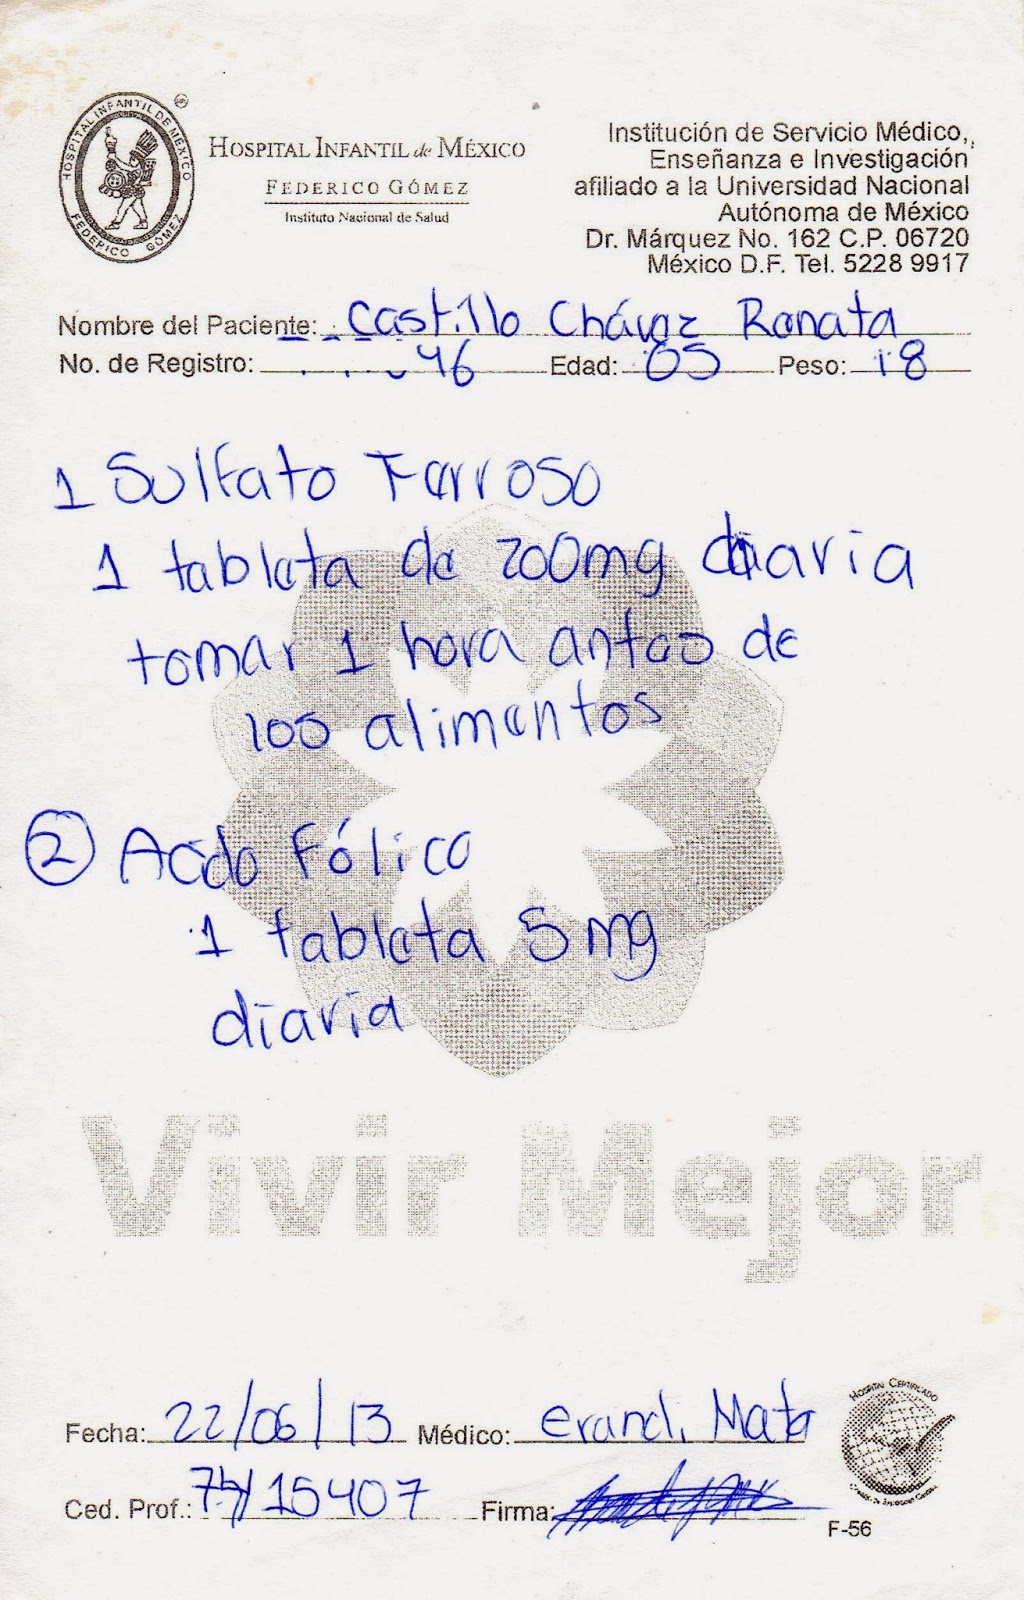 HOSPITAL INFANTIL DE MÉXICO
FEDERICO GÓMEZ
HOSPITAL INFANTIL de MÉXICO
FEDERICO GÓMEZ
Instituto Nacional de Salud
Institución de Servicio Médico,
Enseñanza e Investigación
afiliado a la Universidad Nacional
Autónoma de México
Dr. Márquez No. 162 C.P. 06720
México D.F. Tel. 5228 9917
Nombre del Paciente: Castillo Chávez Renata
No. de Registro: 46 Edad: 05 Peso: 18
1 Sulfato Ferroso
1 tableta de 200mg diaria
tomar 1 hora antes de
los alimentos
2 Acido Fólico
1 tableta 5 mg
diaria
Vivir Mejor
Fecha: 22/06/13 Médico: Erandi Mata
HOSPITAL CERTIFICADO
Ced. Prof.: 15407 Firma:
F-56